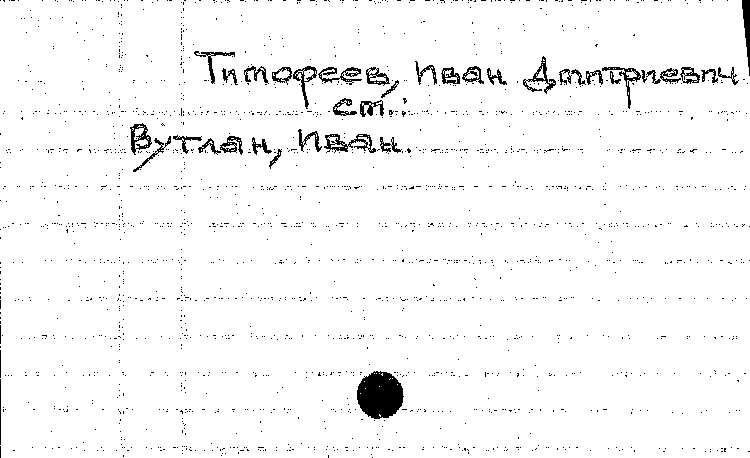 Тимофеев, Иван Дмитриевич
см.:
Вутлан, Иван.